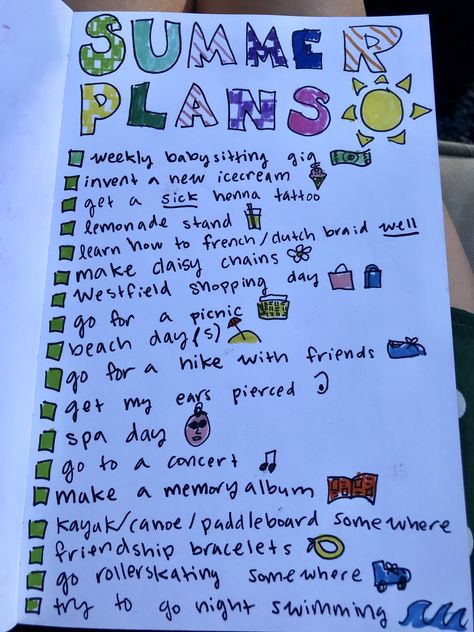 SUMMER
PLANS
weekly babysitting gig
invent a new icecream
get a sick henna tattoo
lemonade stand
learn how to french/dutch braid well
make daisy chains
Westfield shopping day
go for a picnic
beach day(s)
go for a hike with friends
get my ears pierced
spa day
go to a concert
make a memory album
kayak/canoe/paddleboard somewhere
friendship bracelets
go rollerskating somewhere
try to go night swimming